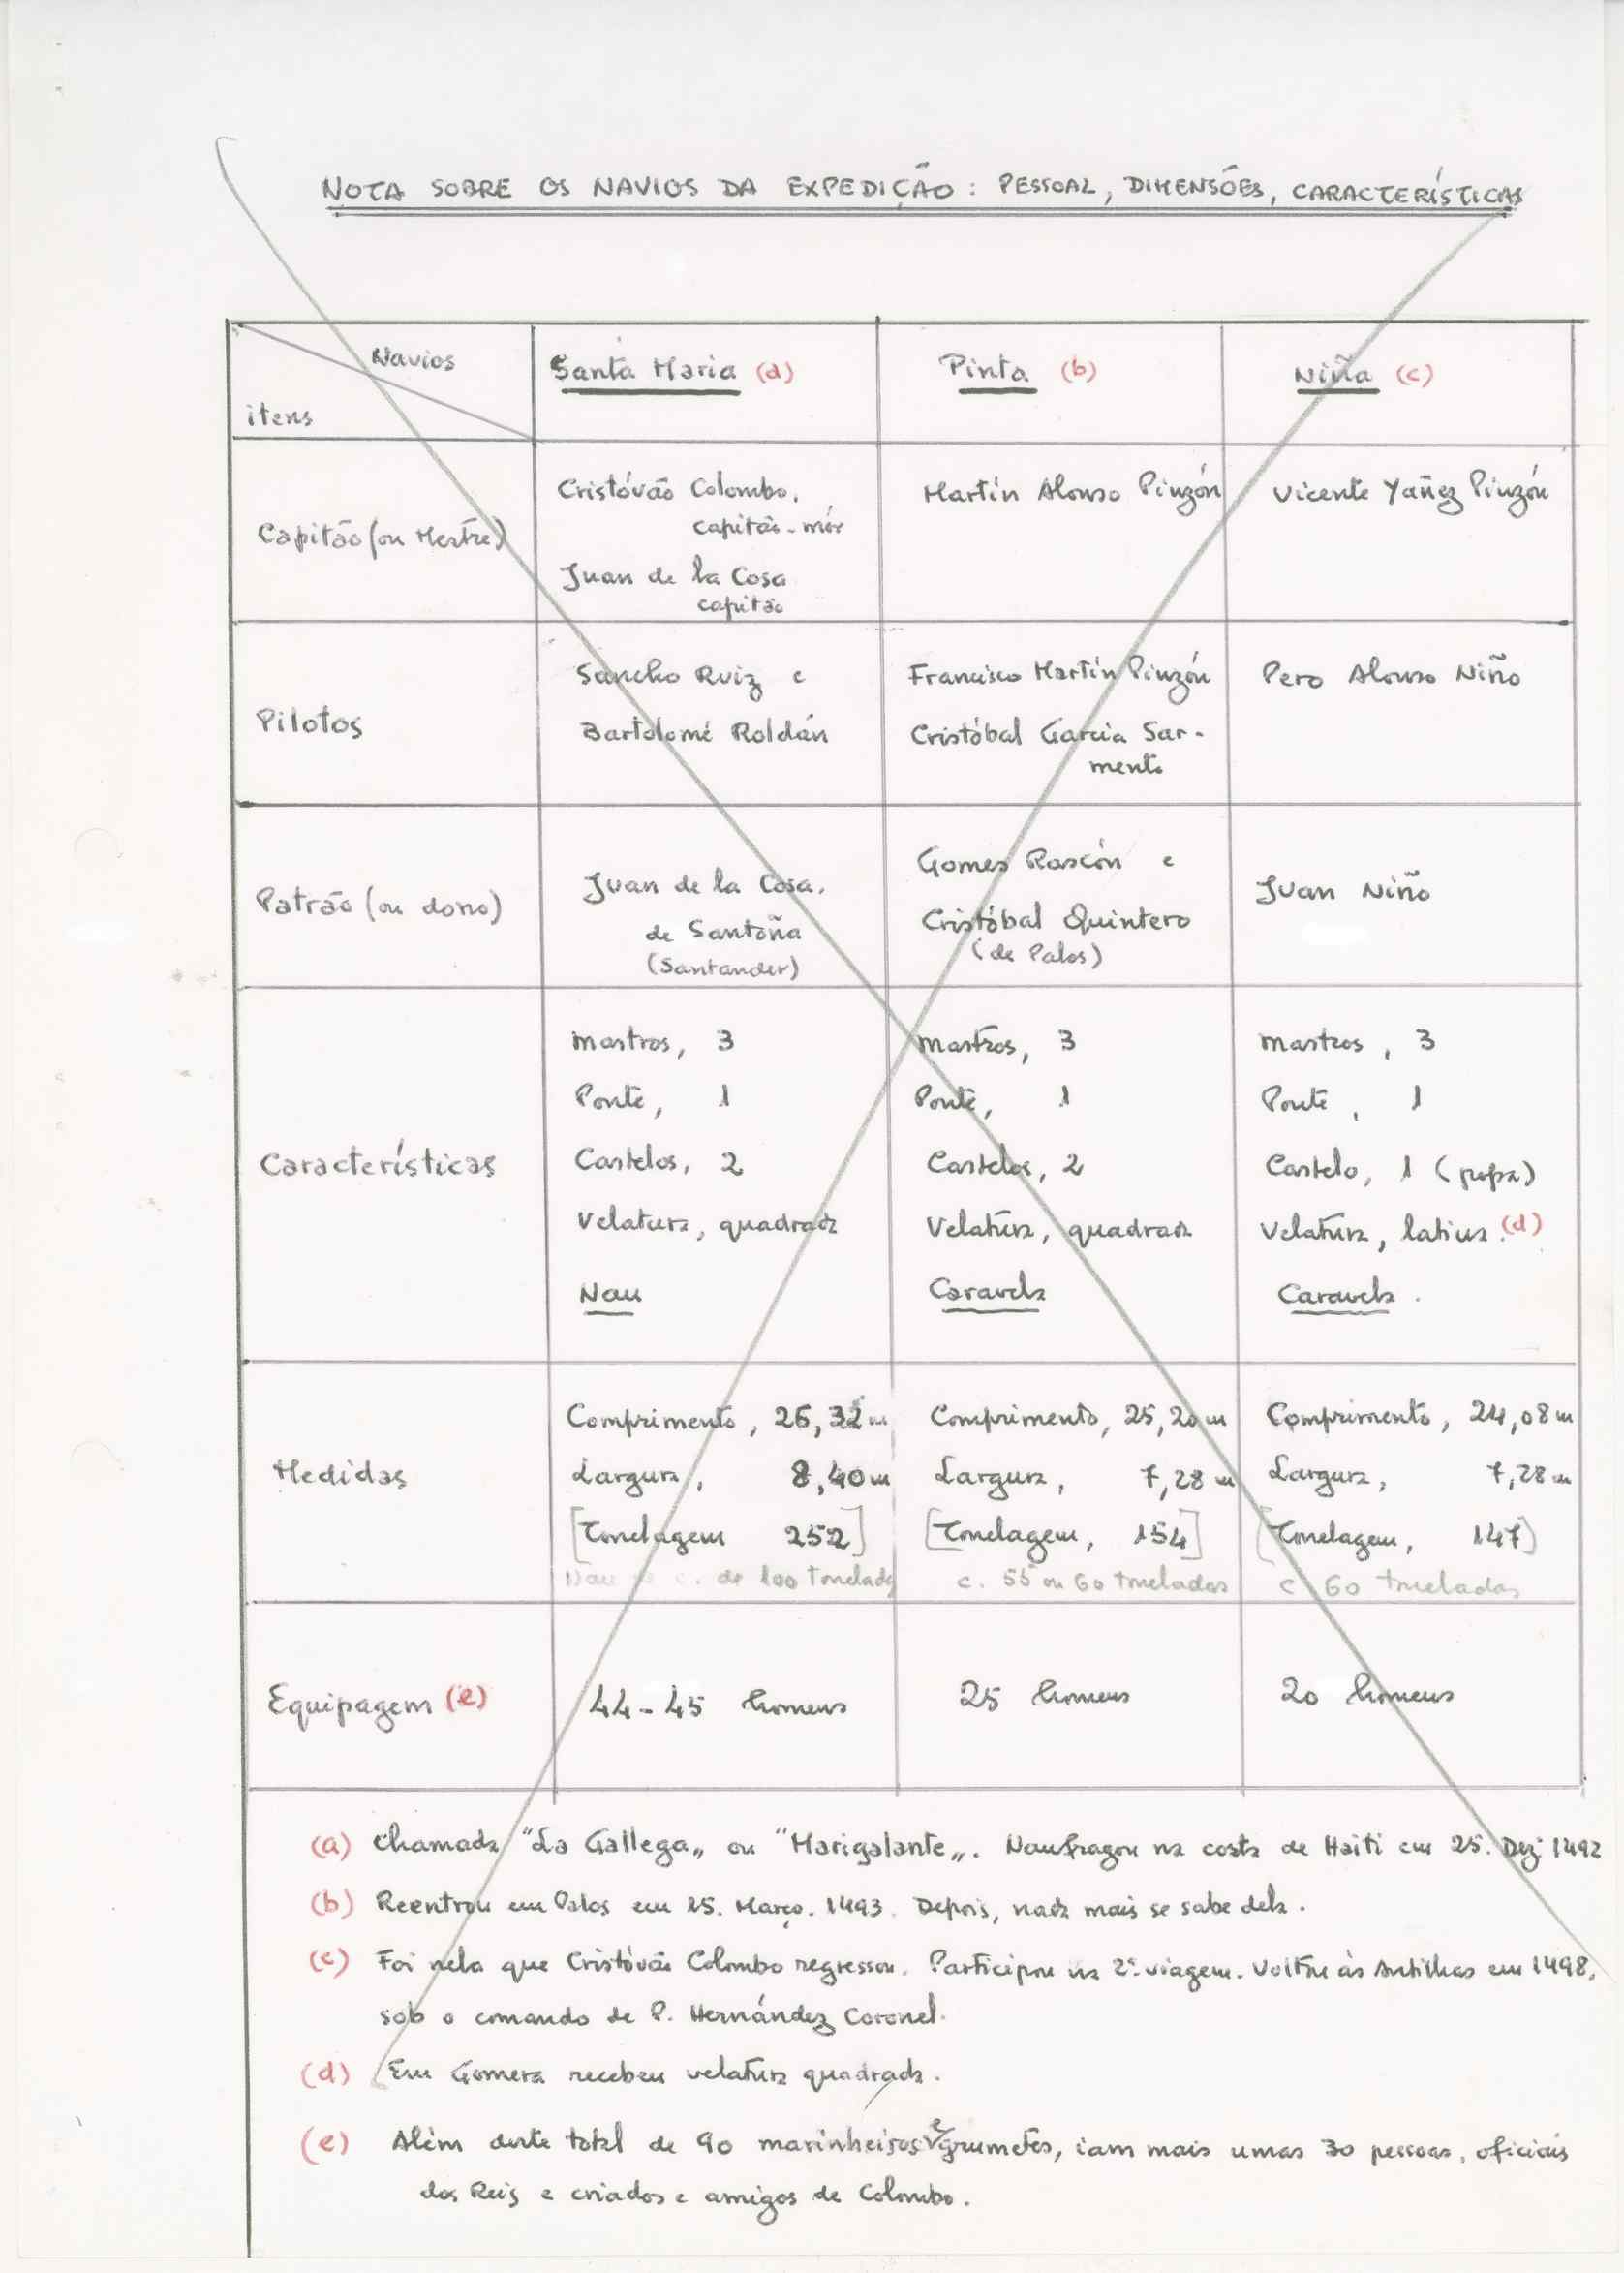 NOTA SOBRE OS NAVIOS DA EXPEDIÇÃO: PESSOAL, DIMENSÕES, CARACTERÍSTICAS
Navios
itens
Santa Maria (a)
Pinta (b)
Niña (c)
Capitão (ou Mestre)
Cristóvão Colombo,
capitão-mór
Juan de la Cosa
capitão
Martín Alonso Pinzón
Vicente Yañez Pinzón
Pilotos
Sancho Ruiz e
Bartolomé Roldán
Francisco Martín Pinzón
Cristóbal Garcia Sar-
mento
Pero Alonso Niño
Patrão (ou dono)
Juan de la Cosa,
de Santoña
(Santander)
Gomes Rascón e
Cristóbal Quintero
(de Palos)
Juan Niño
Características
mastros, 3
Ponte, 1
Castelos, 2
Velatura, quadrada
Nau
mastros, 3
Ponte, 1
Castelos, 2
Velatura, quadrada
Caravela
mastros, 3
Ponte, 1
Castelo, 1 (popa)
Velatura, latina. (d)
Caravela.
Medidas
Comprimento, 26,32 m
Largura, 8,40 m
[Tonelagem 252]
Nau c. de 100 toneladas
Comprimento, 25,20 m
Largura, 7,28 m
[Tonelagem, 154]
c. 55 ou 60 toneladas
Comprimento, 24,08 m
Largura, 7,28 m
[Tonelagem, 147]
c 60 toneladas
Equipagem (e)
44-45 homens
25 homens
20 homens
(a) Chamada "La Gallega" ou "Marigalante". Naufragou na costa de Haiti em 25. Dez 1492
(b) Reentrou em Palos em 15. Março. 1493. Depois, nada mais se sabe dela.
(c) Foi nela que Cristóvão Colombo regressou. Participou na 2ª viagem. Voltou às Antilhas em 1498,
sob o comando de P. Hernández Coronel.
(d) Em Gomera recebeu velatura quadrada.
(e) Além deste total de 90 marinheiros e grumetes, iam mais umas 30 pessoas, oficiais
dos Reis e criados e amigos de Colombo.